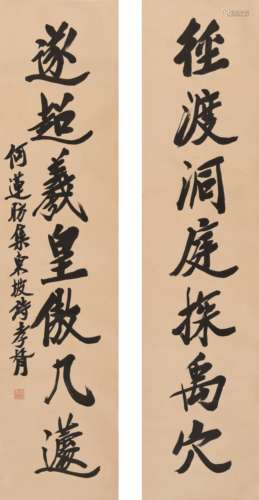 徑渡洞庭探禹穴
遂超羲皇傲几蘧
何蘧舫集東坡詩孝胥